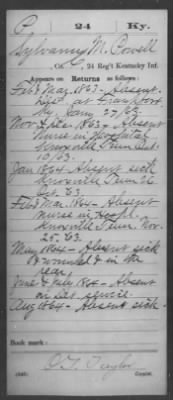 P 24 Ky.
Sylvanus M. Powell
Co. , 24 Reg't Kentucky Inf.
Appears on Returns as follows:
Feb & Mar. 1863 - Absent
Left at Frankfort
Ky. Jany 27/63
Nov & Dec 1863 - Absent
Nurse in Hospital
Knoxville Tenn Oct
10/63.
Jan 1864 - Absent sick
Knoxville Tenn
Oct '63.
Feb & Mar. 1864 - Absent
nurse in Hospl.
Knoxville Tenn. Nov.
25, '63.
May 1864 - Absent sick
& wounded & in the
rear.
June & July 1864 - Absent
on Det. service.
Aug 1864 - Absent sick.
Book mark:
Taylor
Copyist.